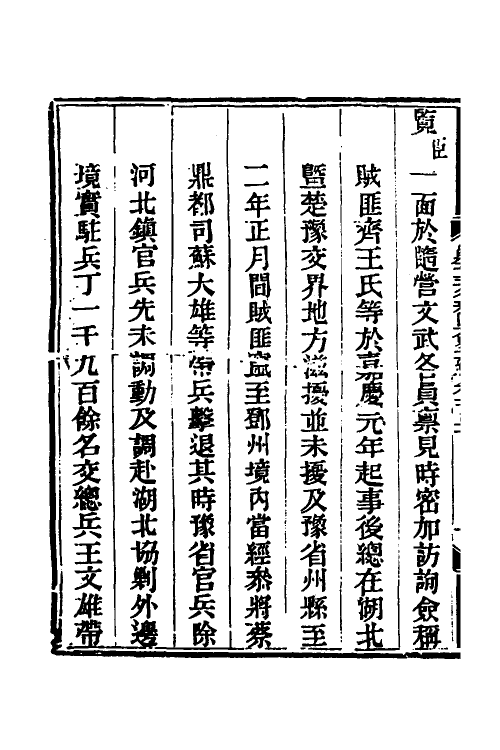 覽臣一面於隨營文武各員稟見時密加訪詢僉稱
賊匪齊王氏等於嘉慶元年起事後總在湖北
暨楚豫交界地方滋擾並未擾及豫省州縣至
二年正月間賊匪竄至鄧州境內當經叅將蔡
鼎都司蘇大雄等帶兵擊退其時豫省官兵除
河北鎭官兵先未調動及調赴湖北協剿外邊
境實駐兵丁一千九百餘名交總兵王文雄帶